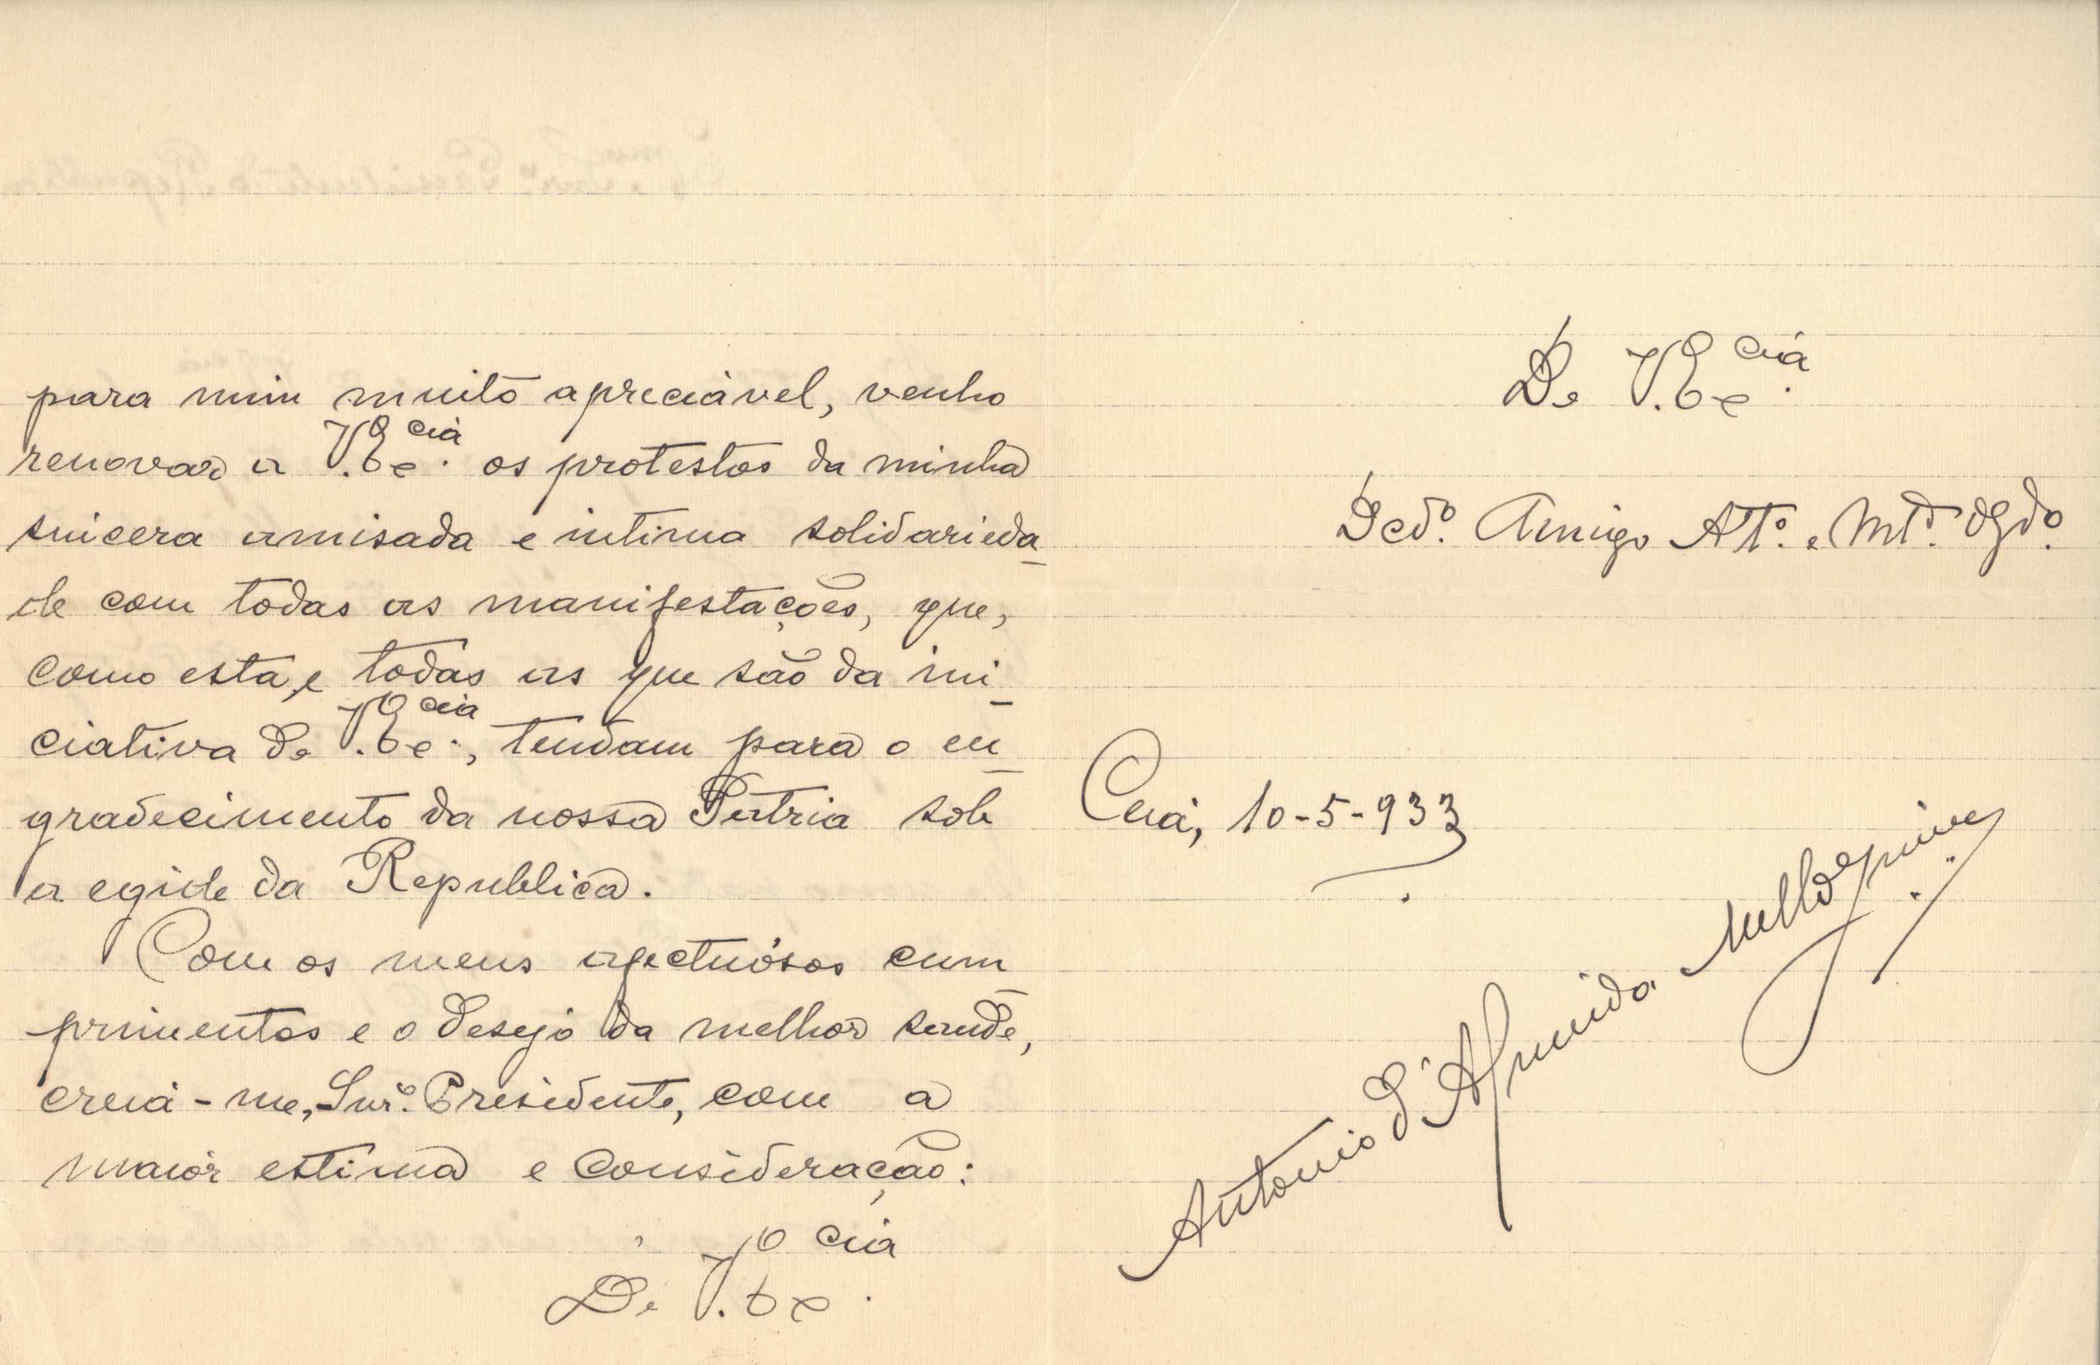 para mim muito apreciável, venho
renovar a V. Ex.cia os protestos da minha
sincera amisada e intima solidarieda-
de com todas as manifestações, que,
como esta, e todas as que são da ini-
ciativa de V. Ex.cia, tendam para o en-
gradecimento da nossa Patria sob
a egide da Republica.
Com os meus afectuósos cum-
primentos e o desejo da melhor saude,
creia-me, Snr. Presidente, com a
maior estima e consideração:
De V. Ex.cia
De V. Ex.cia
Dedº. Amigo Attº. e Mtº. Obgdº.
Ceia, 10-5-933
Antonio d'Almeida Mello